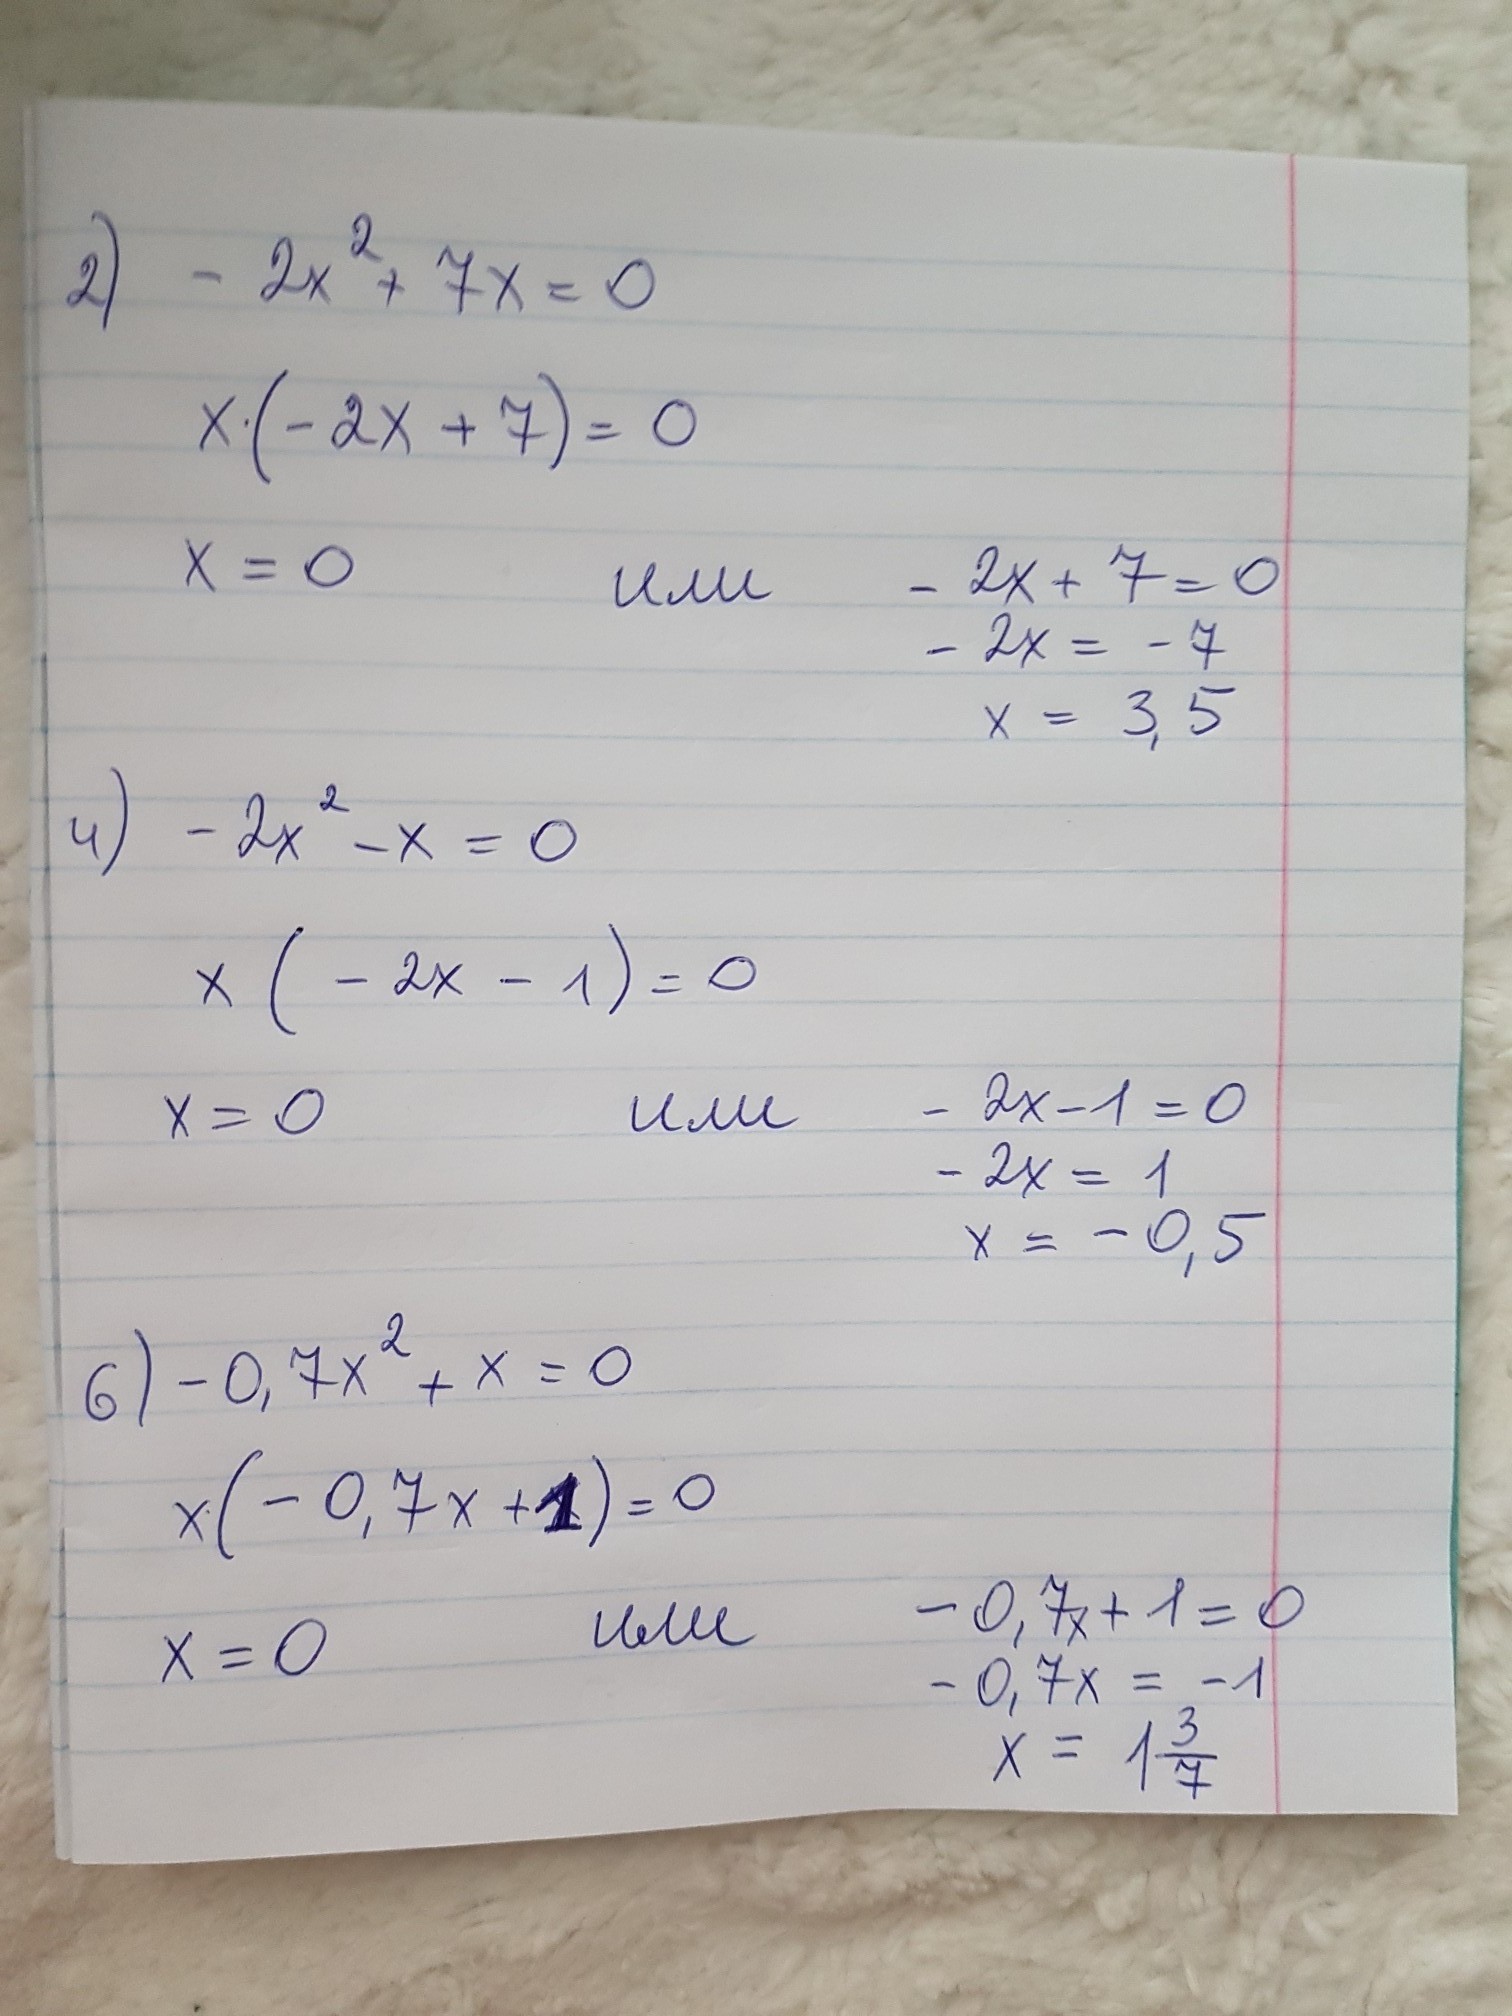 2) - 2x² + 7x = 0
x·(- 2x + 7) = 0
x = 0 или - 2x + 7 = 0
- 2x = - 7
x = 3,5
4) - 2x² - x = 0
x ( - 2x - 1) = 0
x = 0 или - 2x - 1 = 0
- 2x = 1
x = - 0,5
6) - 0,7x² + x = 0
x·(- 0,7x + 1) = 0
x = 0 или - 0,7x + 1 = 0
- 0,7x = - 1
x = 1 3/7